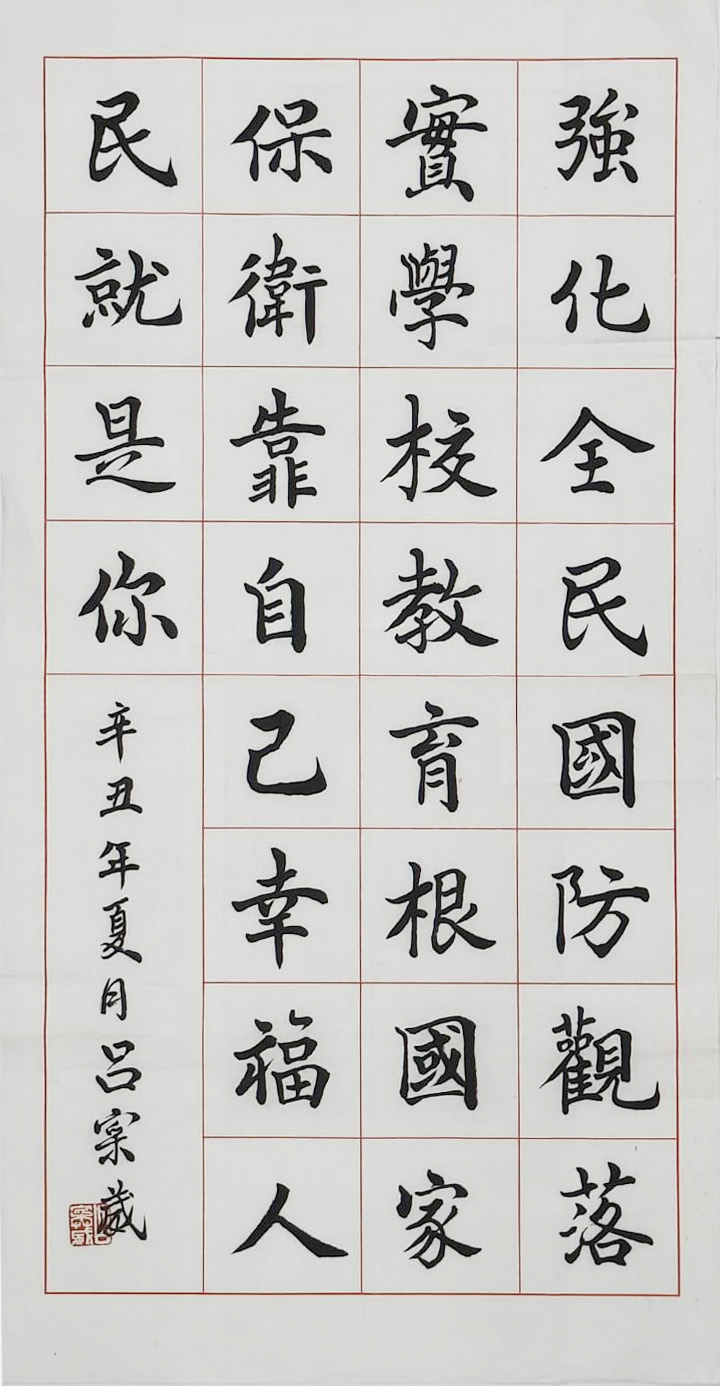 強化全民國防觀落
實學校教育根國家
保衛靠自己幸福人
民就是你
辛丑年夏月呂宗葳